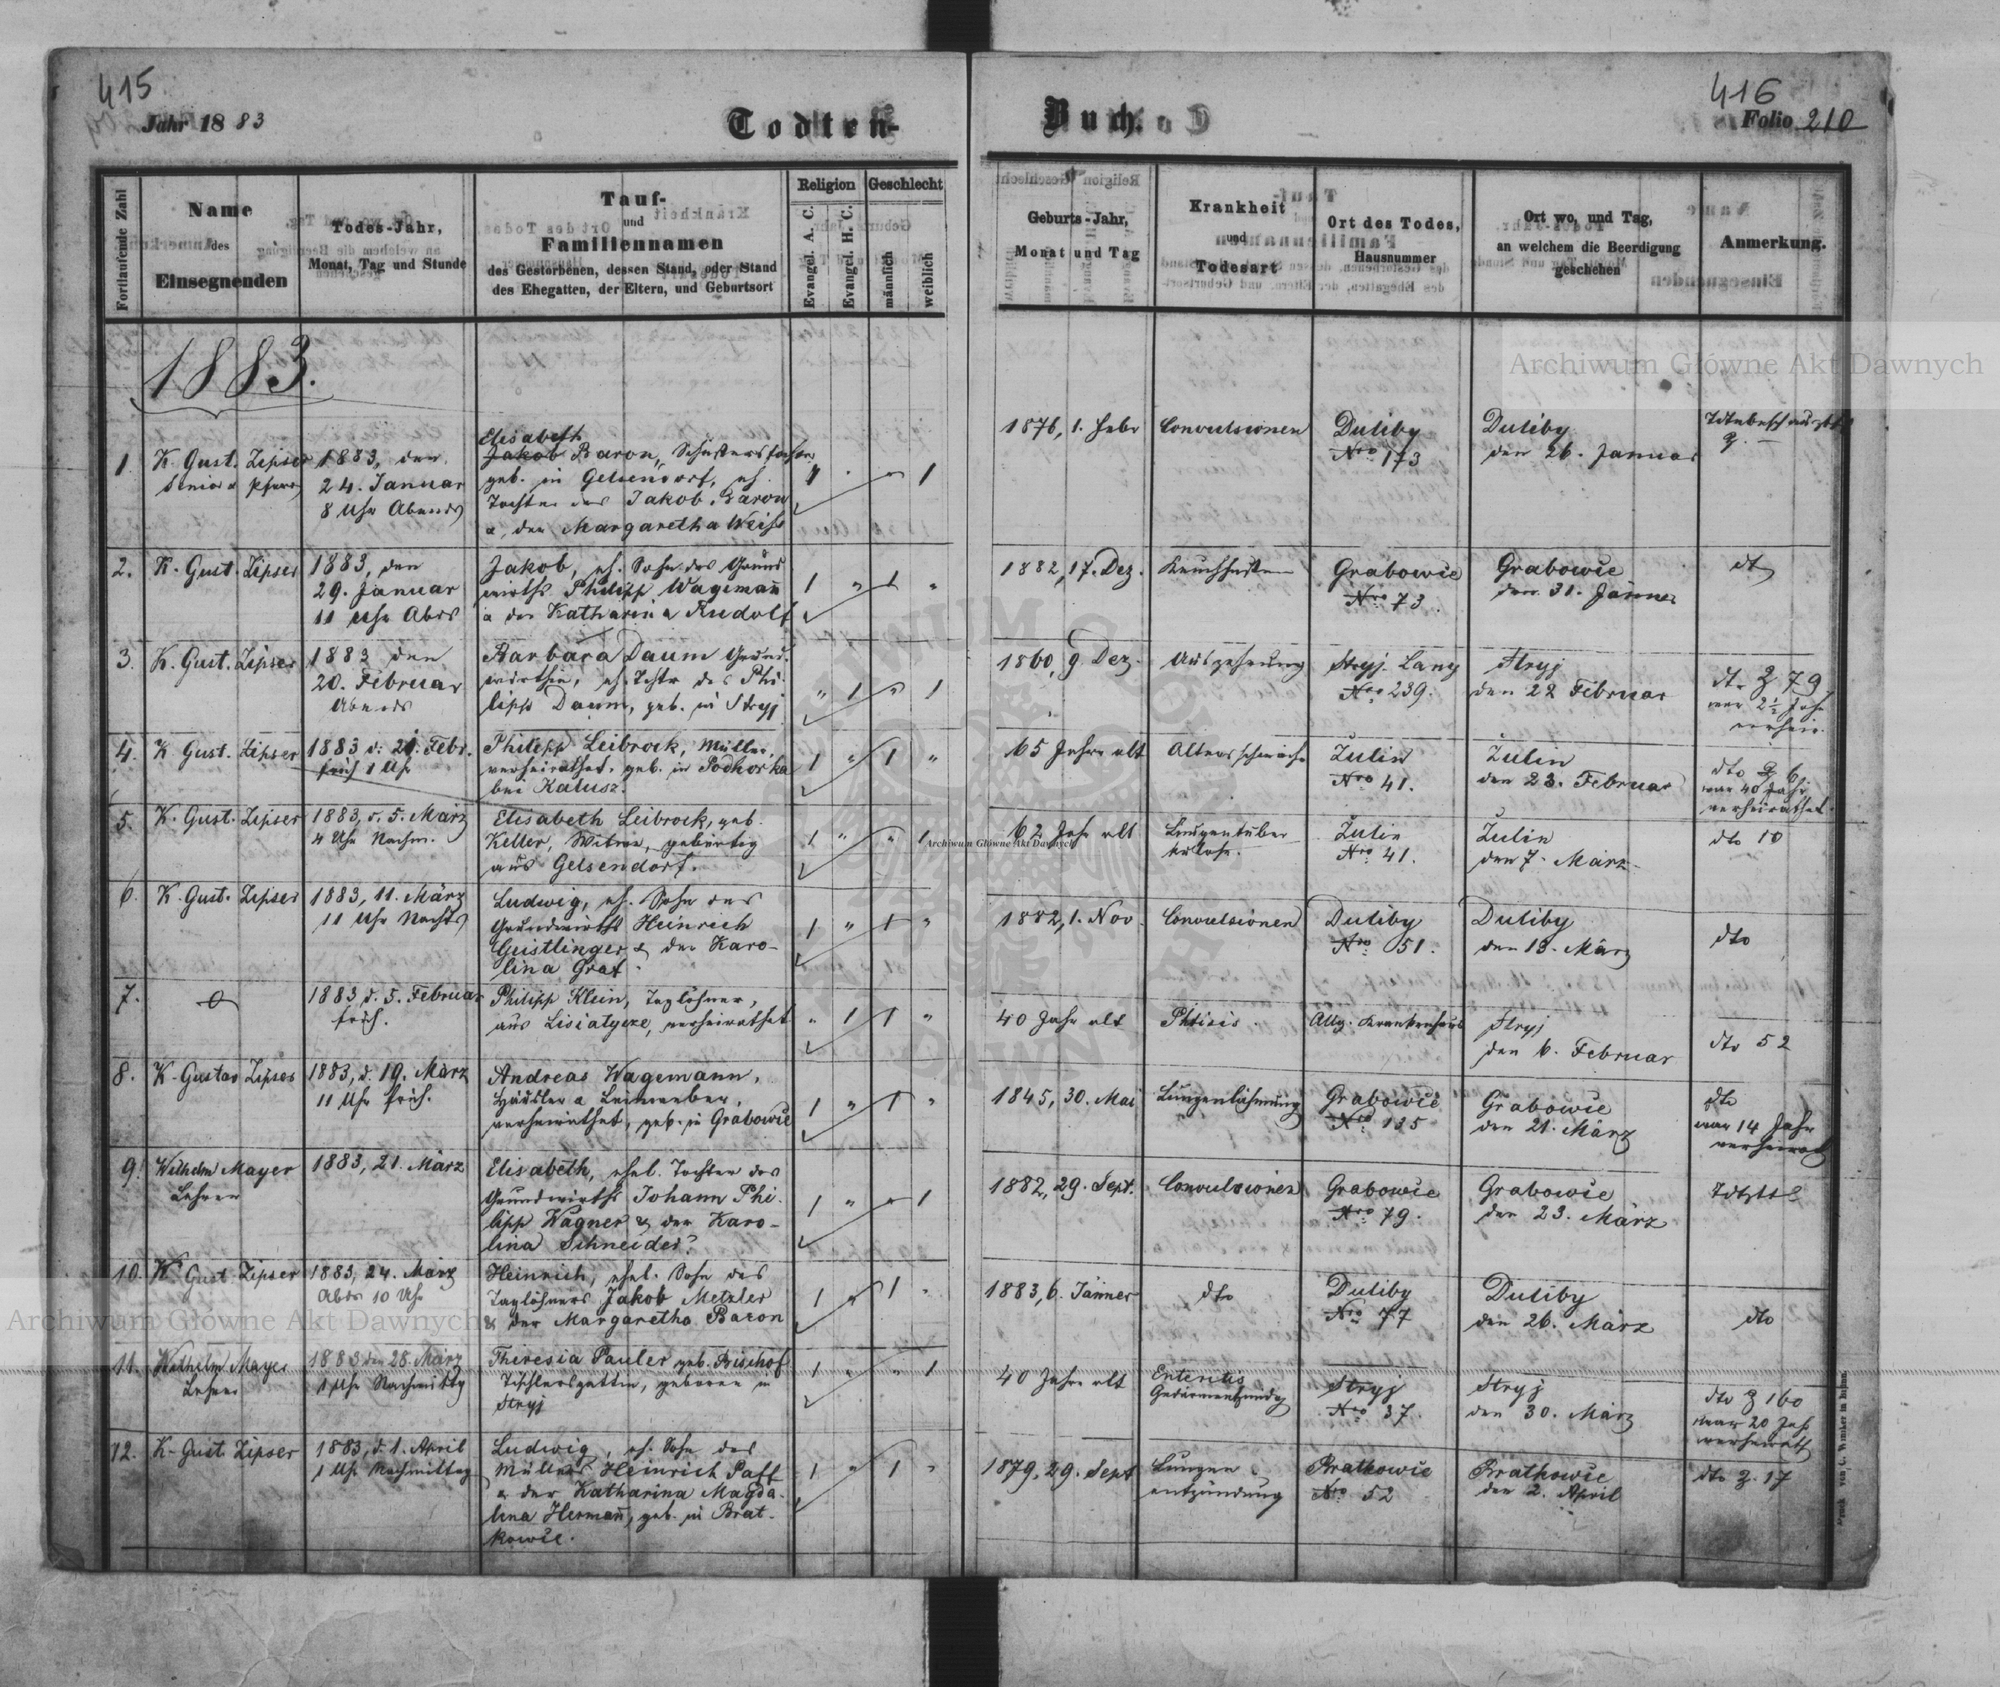 415
Jahr 1883
Todten-
Buch.
416
Folio 210
Fortlaufende Zahl
Name
des
Einsegnenden
Todes-Jahr,
Monat, Tag und Stunde
Tauf-
und
Familiennamen
des Gestorbenen, dessen Stand, oder Stand
des Ehegatten, der Eltern, und Geburtsort
Religion
Evangel. A. C.
Evangel. H. C.
Geschlecht
männlich
weiblich
Geburts-Jahr,
Monat und Tag
Krankheit
und
Todesart
Ort des Todes,
Hausnummer
Ort wo, und Tag,
an welchem die Beerdigung
geschehen
Anmerkung.
1883.
1.
K. Gust. Zipser
Senior & Pfarrer
1883, den
24. Januar
8 Uhr Abends
Elisabeth
Jakob Baron,
geb. in Gelsendorf, eh.
Tochter des Jakob Baron
u. der Margaretha Weiss
1 " " 1
1876, 1. Febr
Convulsionen
Duliby
Nro 173
Duliby
den 26. Januar
2.
K. Gust. Zipser
1883, den
29. Januar
11 Uhr Abds
Jakob, eh. Sohn des Grund
wirths Philipp Wagemañ
u der Katharina Rudolf
1 " 1 "
1882, 17. Dez.
Keuchhusten
Grabowie
Nro 73.
Grabowie
den 31. Jänner
dto
3.
K. Gust. Zipser
1883 den
20. Februar
Abends
Barbara Daum Grund.
wirthin, eh. Tochtr des Phi.
lipp Daum, geb. in Stryj
" 1 " 1
1860, 9 Dez.
Auszehrung
Stryj. Lany
Nro 239.
Stryj
den 22 Februar
dto Z 79
war 2½ Jahr
verheir.
4.
K Gust. Zipser
1883 d. 21. Febr.
früh 1 Uhr
Philipp Leibrock, Müller,
verheirathet, geb. in Podhorka
bei Kalusz.
1 " 1 "
65 Jahre alt
Altersschwäche
Zulin
Nro 41.
Zulin
den 23. Februar
dto Z 6.
war 40 Jahr
verheirathet.
5.
K. Gust. Zipser
1883, d. 5. März
4 Uhr Nachm.
Elisabeth Leibrock, geb.
Keller, Witwe, gebürtig
aus Gelsendorf.
1 " " 1
62 Jahr alt
Lungentuber
kulose.
Zulin
Nro 41.
Zulin
den 7. März
dto 10
6.
K. Gust. Zipser
1883, 11. März
11 Uhr Nachts
Ludwig, eh. Sohn des
Grundwirths Heinrich
Geistlinger & der Karo-
lina Graf.
1 " 1 "
1882, 1. Nov.
Convulsionen
Duliby
Nro 51.
Duliby
den 13. März
dto
7.
1883, d. 5. Februar
früh.
Philipp Klein, Taglöhner,
aus Lisiatycze, verheirathet
" 1 1 "
40 Jahr alt
Phtisis.
Allg. Krankenhaus
Stryj
den 6. Februar
dto 52
8.
K. Gustav Zipser
1883, d. 19. März
11 Uhr früh.
Andreas Wagemann,
Häusler u Leinweber,
verheirathet, geb. in Grabowie
1 " 1 "
1845, 30. Mai
Lungenlähmung
Grabowie
Nro 135
Grabowie
den 21. März
dto
war 14 Jahr
verheirat
9.
Wilhelm Mayer
Lehrer
1883, 21. März
Elisabeth, ehel. Tochter des
Grundwirths Johann Phi-
lipp Wagner & der Karo-
lina Schneider.
1 " " 1
1882, 29. Sept.
Convulsionen
Grabowie
Nro 79.
Grabowie
den 23. März
10.
K. Gust Zipser
1883, 24. März
Abds 10 Uhr
Heinrich, ehel. Sohn des
Taglöhners Jakob Metzler
& der Margaretha Baron
1 " 1 "
1883, 6. Jänner
dto
Duliby
Nro 77
Duliby
den 26. März
dto
11.
Wilhelm Mayer
Lehrer
1883 den 28. März
1 Uhr Nachmittag
Theresia Pauler geb. Bischof
Tischlersgattin, geboren in
Stryj
1 " " 1
40 Jahre alt
Enteritis
Gedärmentzündg
Stryj
Nro 37.
Stryj
den 30. März
dto Z 160
war 20 Jahr
verheirath
12.
K. Gust Zipser
1883, d. 1. April
1 Uhr Nachmittag
Ludwig, eh. Sohn des
Müllers Heinrich Paff
u der Katharina Magda-
lina Hermañ, geb. in Brat-
kowie.
1 " 1 "
1879, 29. Sept
Lungen
entzündung
Bratkowie
Nro 52
Bratkowie
den 2. April
dto Z. 17
Archiwum Główne Akt Dawnych
Archiwum Główne Akt Dawnych
Archiwum Główne Akt Dawnych